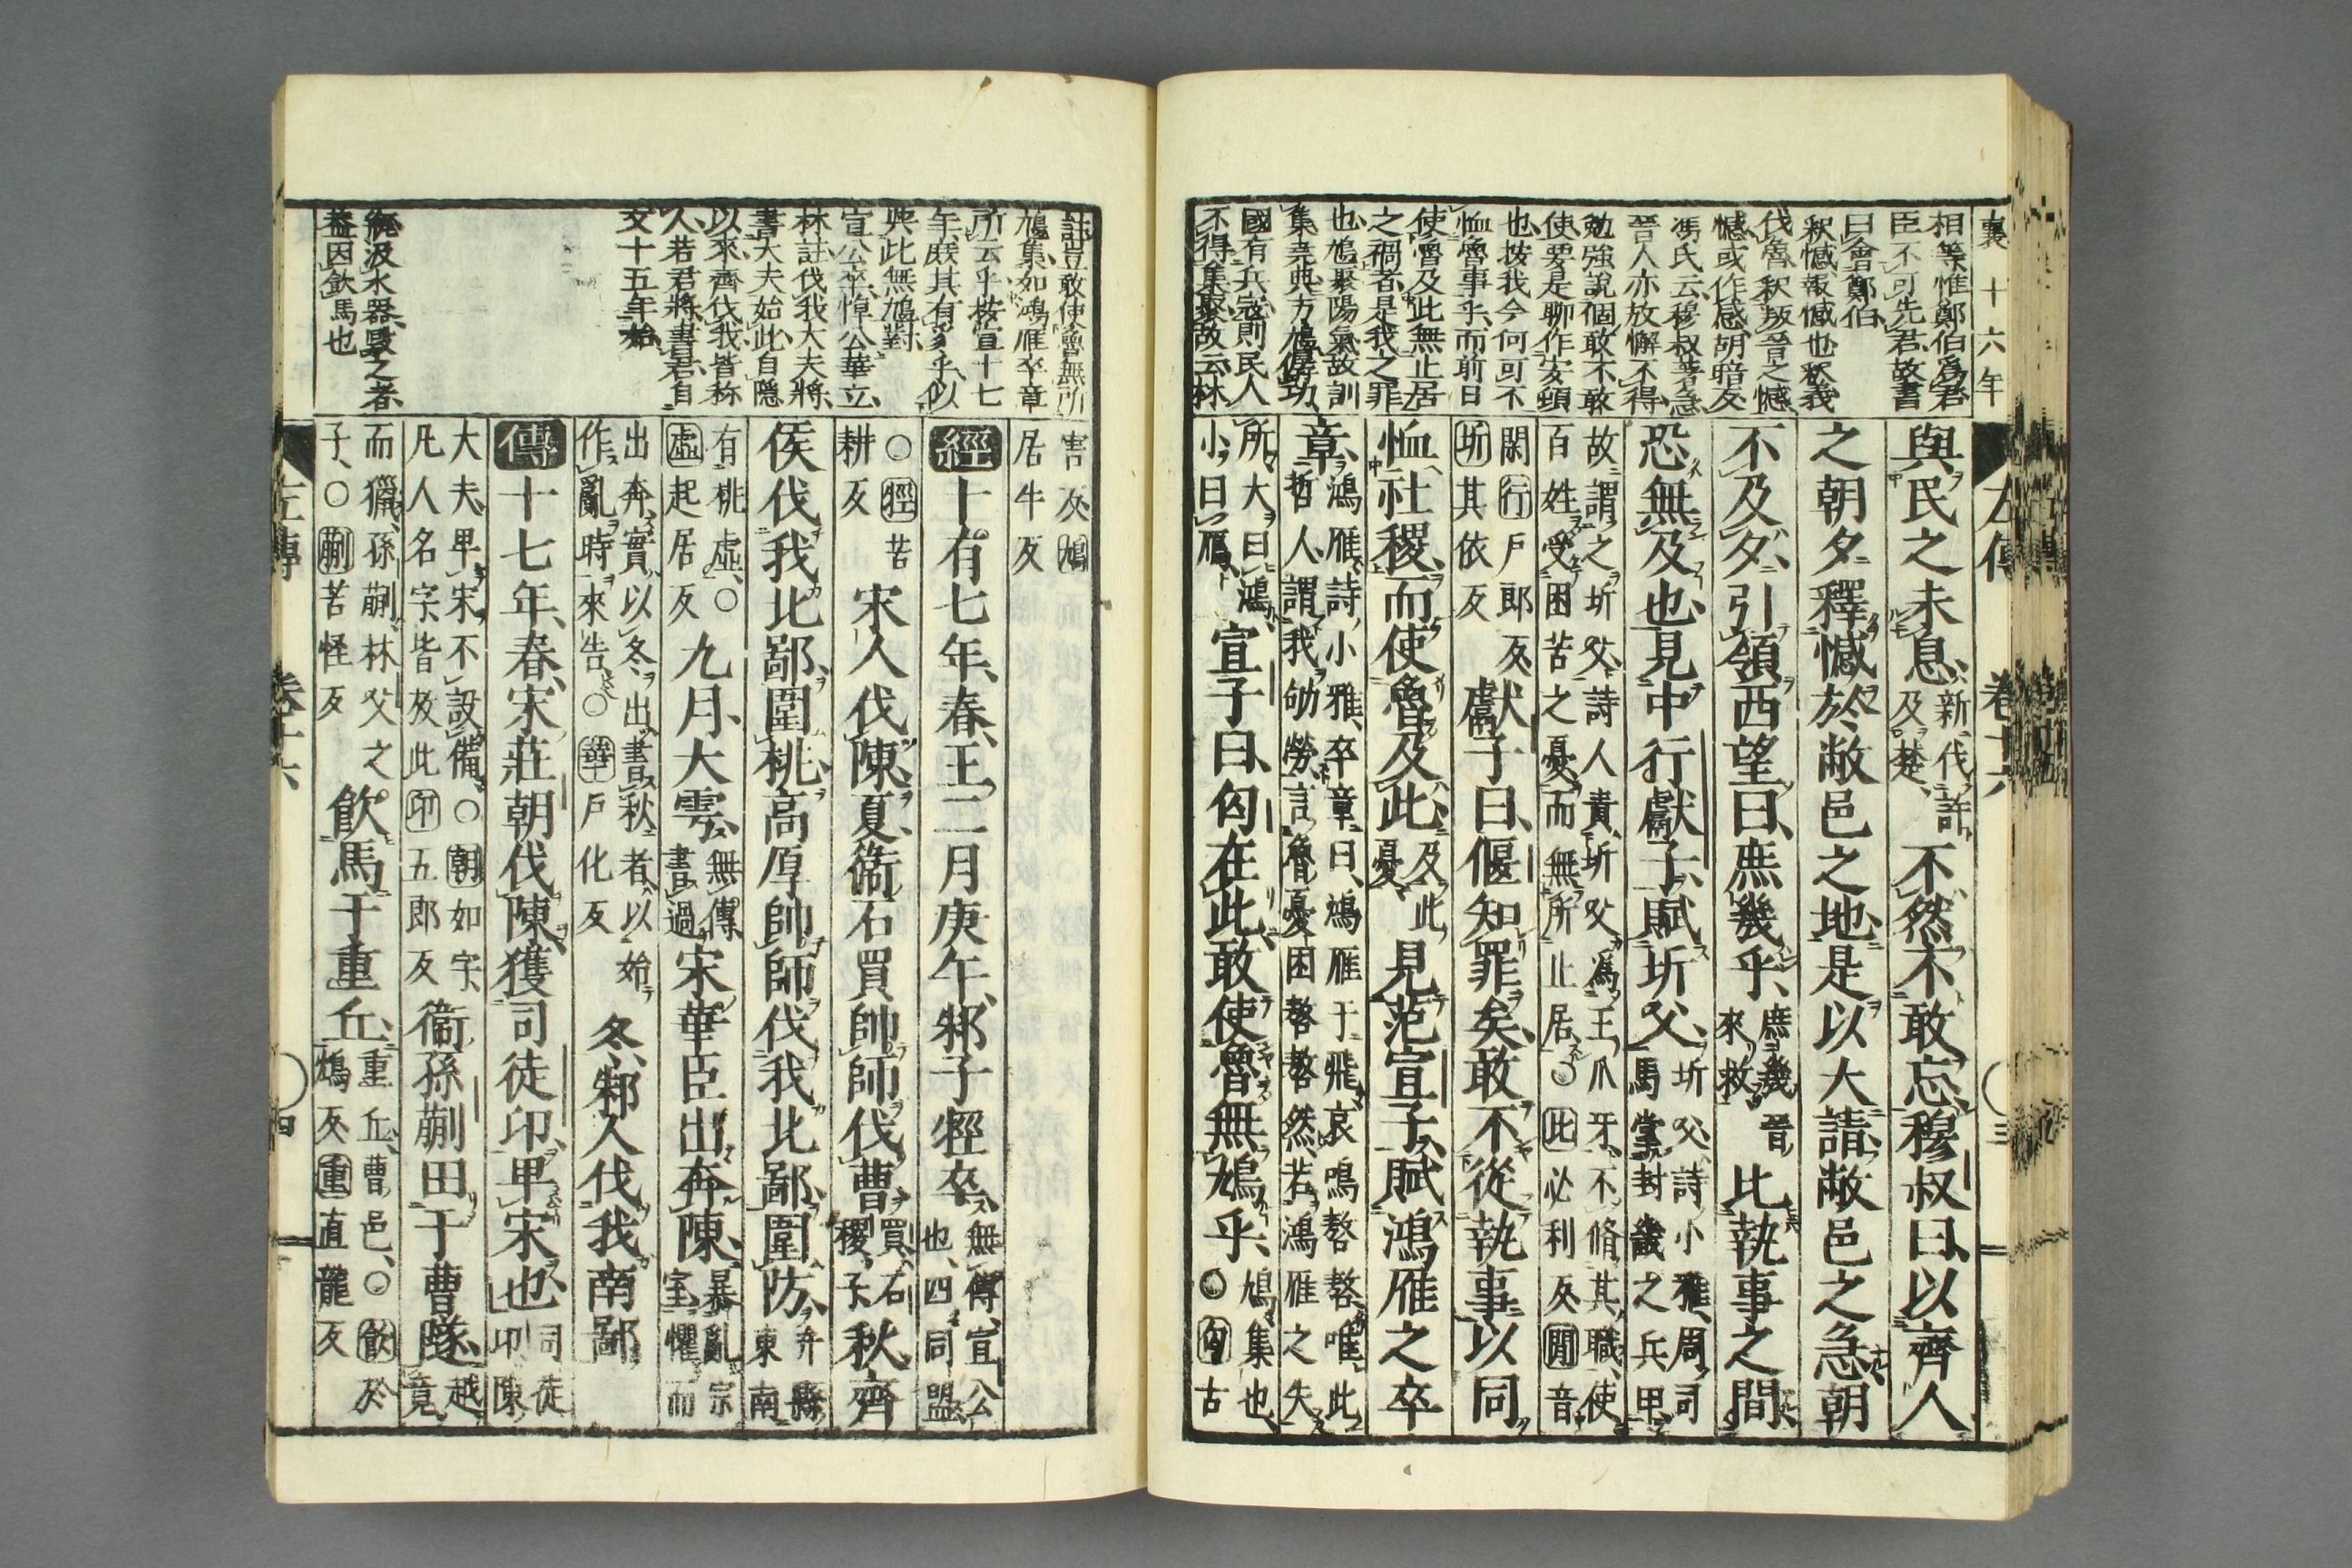 襄十六年
相等惟鄭伯爲君
臣不可先君故書
曰會鄭伯
釈憾報憾也釈義
伐魯釈叛晉之憾
憾或作感胡暗反
馮氏云穆叔著急
晉人亦放懈不得
勉強說個敢不敢
使要是聊作安頓
也按我今何可不
恤魯事乎而前日
使魯及此無止居
之禍者是我之罪
也鳩聚陽氣故訓
集堯典方鳩僝功
國有兵寇則民人
不得集聚故云林
左傳 卷十六 三
與民之未息新伐許及楚不然不敢忘穆叔曰以齊人
之朝夕釋憾於敝邑之地是以大請敝邑之急朝
不及夕引領西望曰庶幾乎庶幾晉來救比執事之間
恐無及也見中行獻子賦圻父圻父詩小雅周司馬掌封畿之兵甲
故謂之圻父詩人責圻父爲王爪牙不脩其職使
百姓受困苦之憂而無所止居○比必利反間音
閑行戶郎反圻其依反獻子曰偃知罪矣敢不從執事以同
恤社稷而使魯及此及此憂見范宣子賦鴻雁之卒
章鴻雁詩小雅卒章曰鴻雁于飛哀鳴嗸嗸唯此
哲人謂我劬勞言魯憂困嗸嗸然若鴻雁之失
所大曰鴻小曰雁宣子曰匄在此敢使魯無鳩乎鳩集也○匄古
註豈敢使魯無所
鳩集如鴻雁卒章
所云乎按宣十七
年庶其有豸乎以
與此無鳩對
宣公卒悼公華立
林註伐我大夫將
書大夫始此自隱
以來齊伐我皆称
人若君將書君自
文十五年始
缾汲水器毀之者
蓋因飲馬也
害反鳩
居牛反
經十有七年春王二月庚午邾子牼卒無傳宣公也四同盟
○牼苦耕反宋人伐陳夏衞石買帥師伐曹買石稷子秋齊
侯伐我北鄙圍桃高厚帥師伐我北鄙圍防弁縣東南
有桃虛○虛起居反九月大雩無傳書過宋華臣出奔陳暴亂宗室懼而
出奔實以冬出書秋者以始作亂時來告○華戶化反冬邾人伐我南鄙
傳十七年春宋莊朝伐陳獲司徒卬卑宋也司徒卬陳
大夫卑宋不設備○朝如字凡人名字皆放此卬五郎反衞孫蒯田于曹隧越竟
而獵孫蒯林父之子○蒯苦怪反飲馬于重丘重丘曹邑○飲於鴆反重直龍反
左傳 卷十六 四